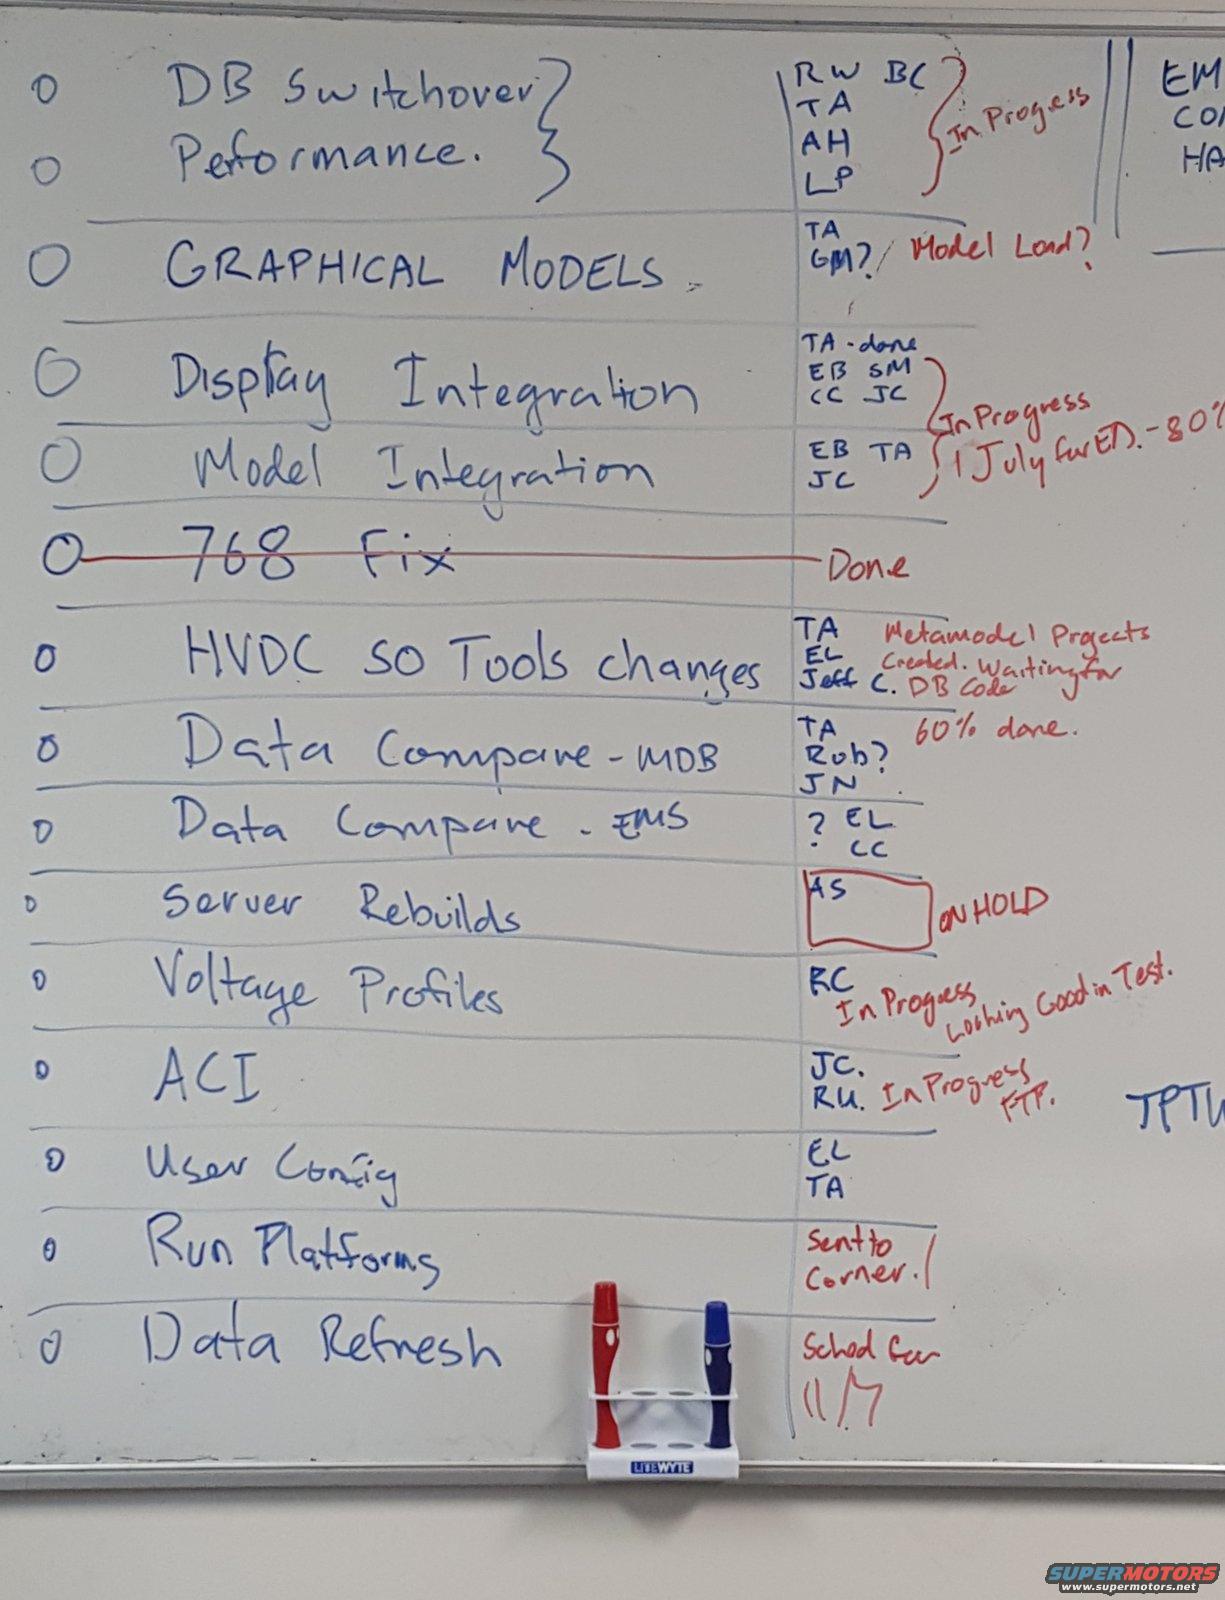 DB Switchover
Performance.
RW BC
TA
AH
LP
In Progress
EM
CO
HA
GRAPHICAL MODELS.
TA
GM?
Model Load?
Display Integration
TA - done
EB SM
CC JC
In Progress
1 July for ED. - 80%
Model Integration
EB TA
JC
768 Fix
Done
HVDC SO Tools changes
TA
EL
Jeff C.
Metamodel Projects
Created. Waiting for
DB Code
Data Compare - MDB
TA
Rob?
JN
60% done.
Data Compare - EMS
? EL
CC
Server Rebuilds
AS
ON HOLD
Voltage Profiles
RC
In Progress
Looking Good in Test.
ACI
JC.
RU.
In Progress
FTP.
TPTW
User Config
EL
TA
Run Platforms
Sent to
Corner.
Data Refresh
Sched for
11/7
LITEWYTE
SUPERMOTORS
www.supermotors.net